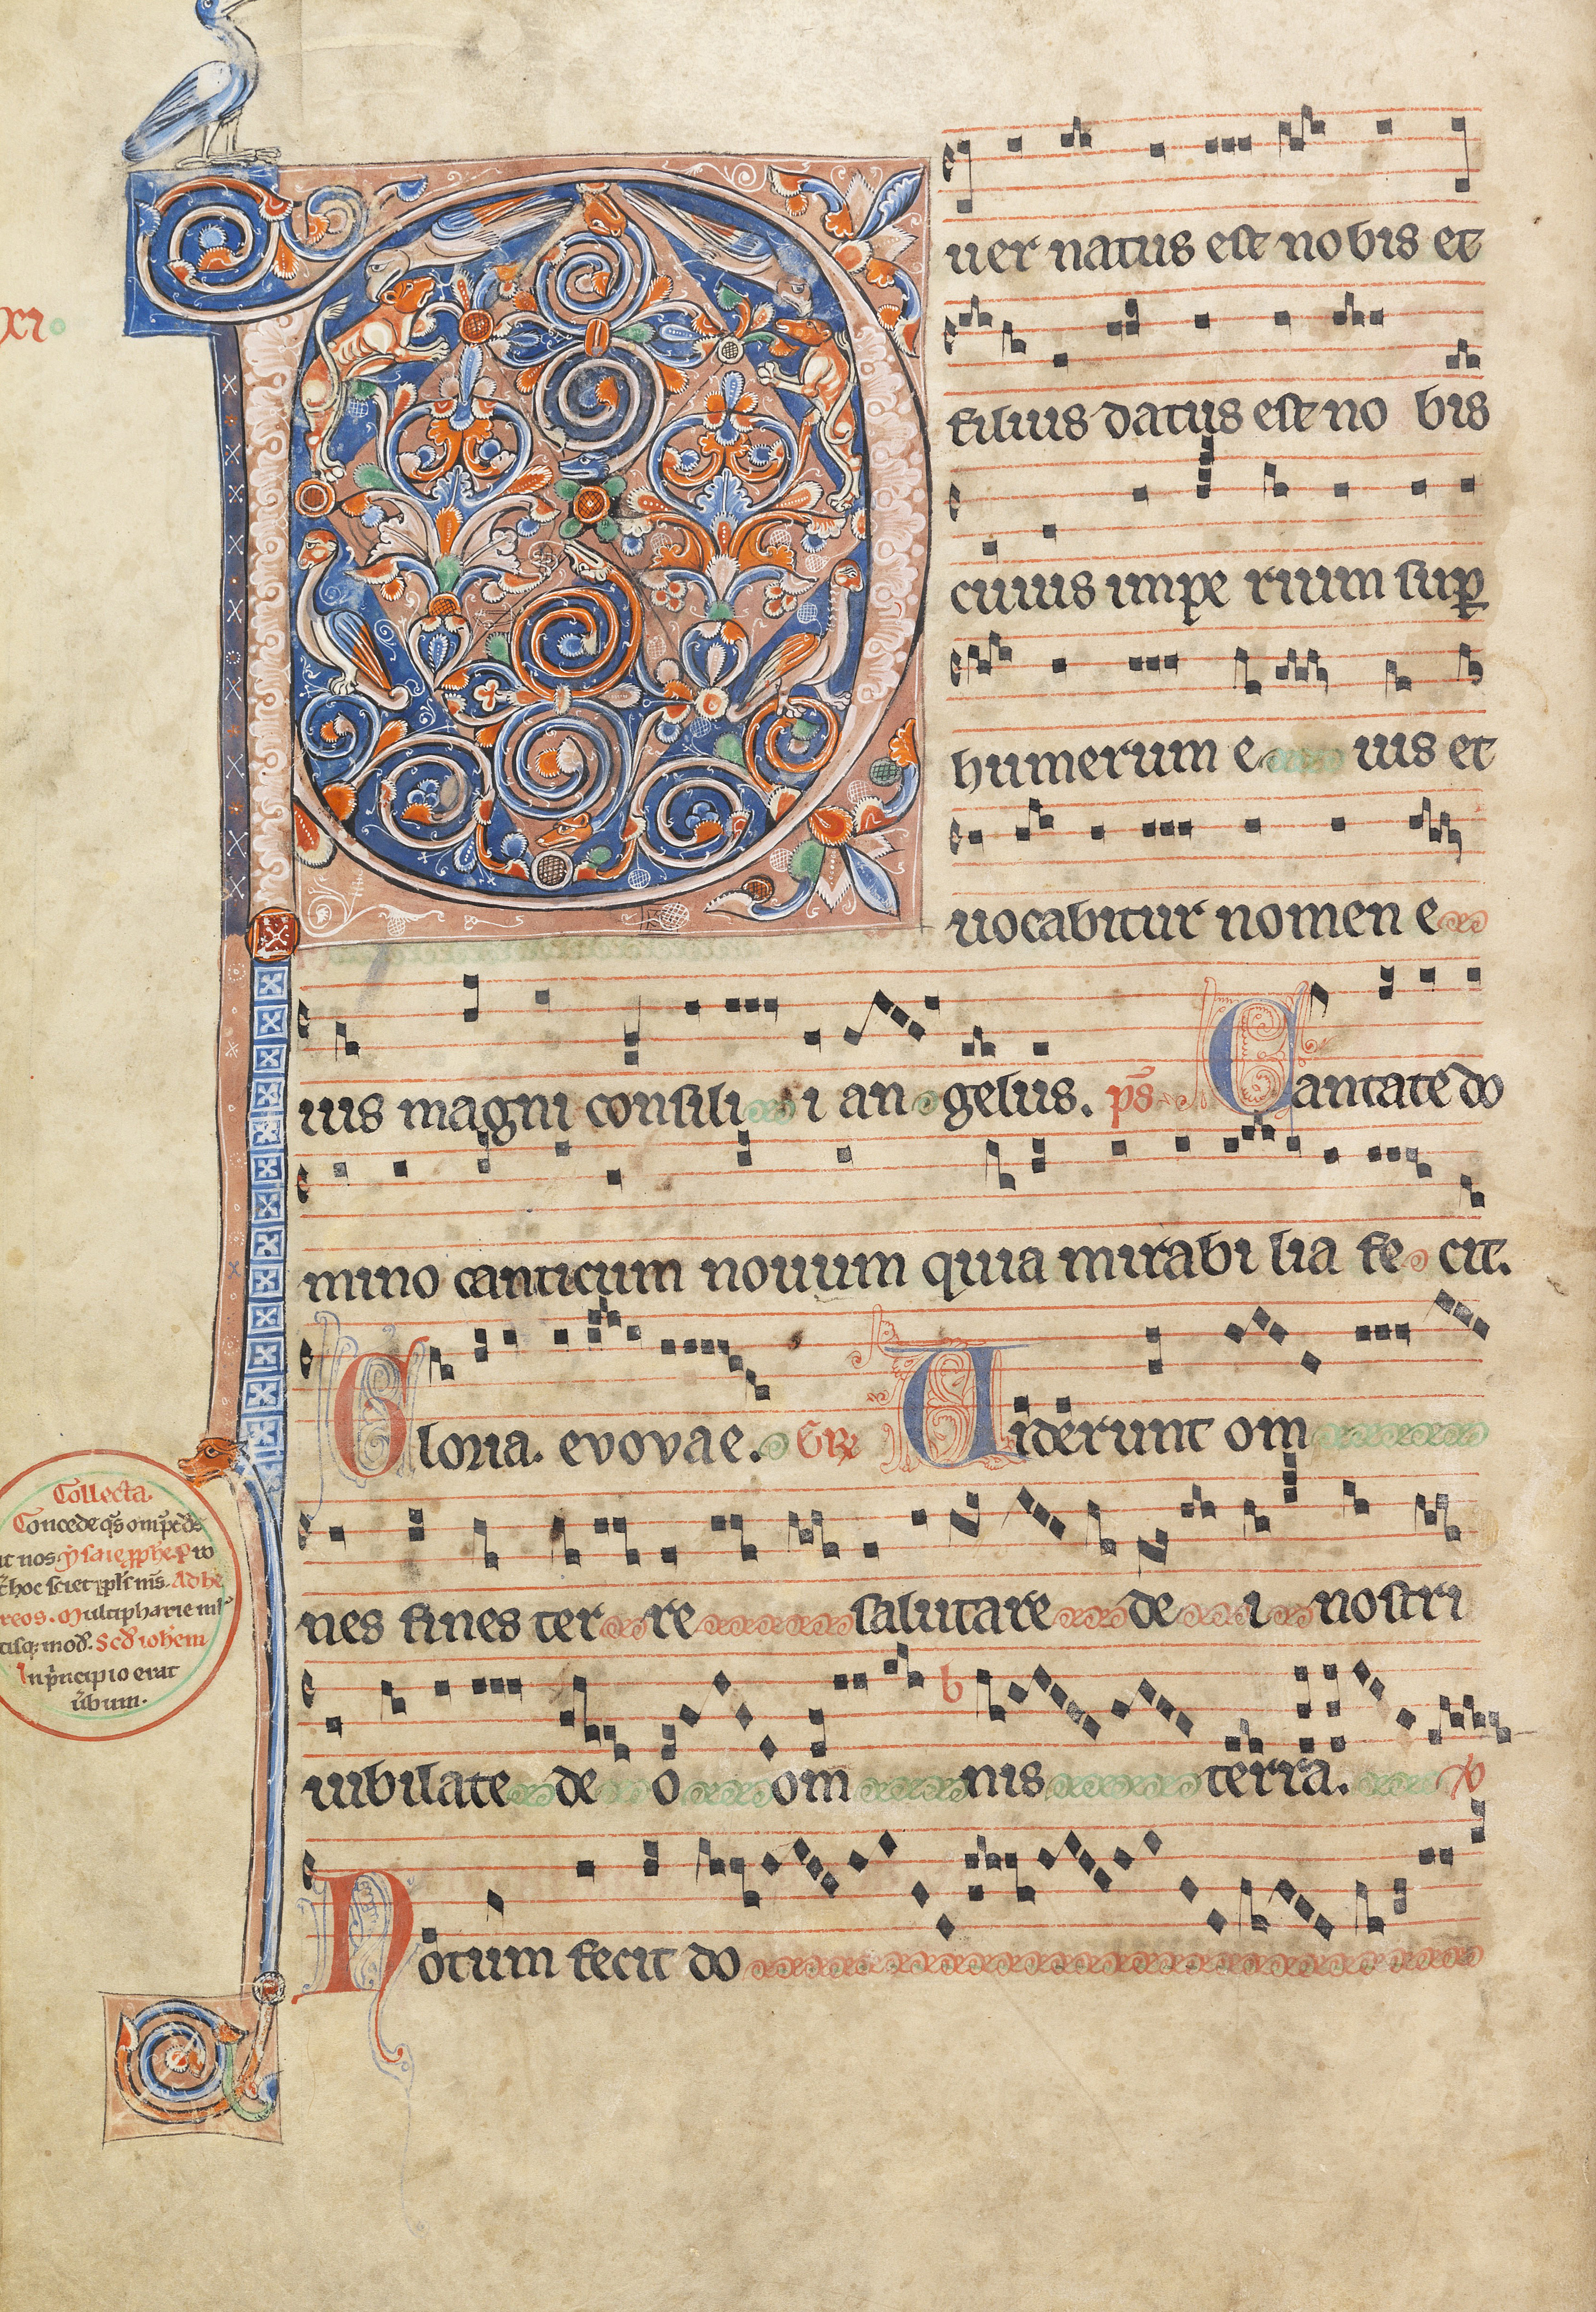 P
uer natus est nobis et
filius datus est no bis
cuius impe rium sup
humerum e ius et
uocabitur nomen e
xi
ius magni consili i an gelus. ps Cantate do
mino canticum nouum quia mirabi lia fe cit.
Gloria. evovae. Gr Uiderunt om
nes fines ter re salutare de i nostri
iubilate de o om nis terra.
Notum fecit do
Collecta.
Concede qs omps ds
ut nos
hoc sciet Ad he
reos. Multipharie
mod. Scd iohem
In principio erat
ubum.